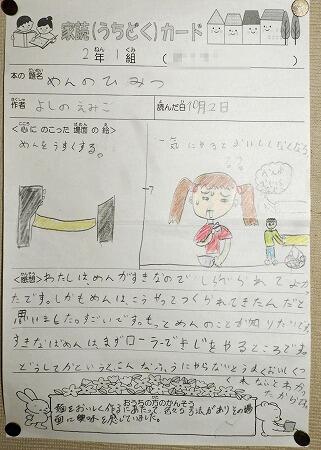 家読(うちどく)カード
2年1組
本の題名 めんのひみつ
作者 よしのえみこ
読んだ日 10月2日
<心にのこった場面の絵>
めんをうすくする。
一気にやるとおいしくなくなる
<感想>わたしはめんがすきなので しらべられてよかった
たです。しかもめんは、こうやってつくられてきたんだと
思いました。すごいです。もっとめんのことが知りたいです。
すきなばめんはまずローラーできじをやるところです。
どうしてかというと、こんなふうにやらないとうまくおいしくつ
くれないとわかっ
たからです。
おうちの方のかんそう
麺をおいしく作るにあたって 色々な方法があり その場
面に興味を感じていました。